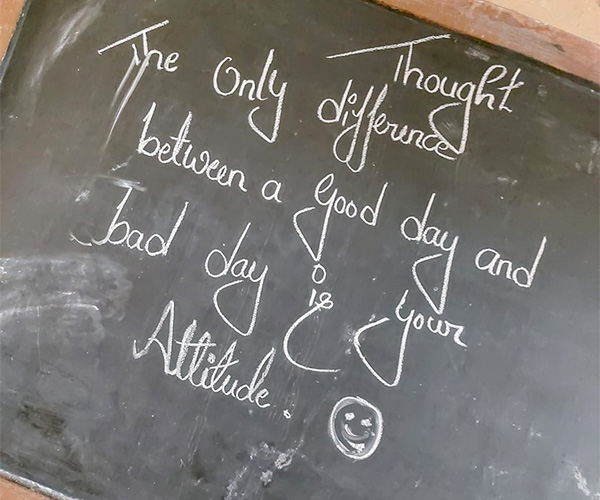 Thought
The Only difference
between a good day and
bad day is your
Attitude.